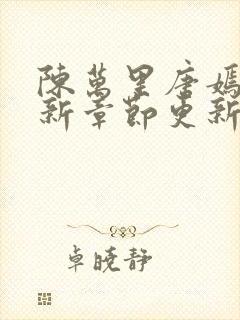 陳萬里唐嫣
新章節更新
卓曉靜